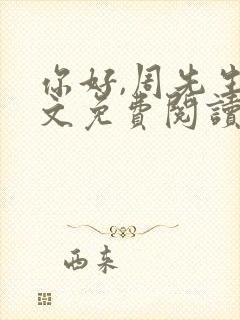 你好,周先生
文免费阅读
西来